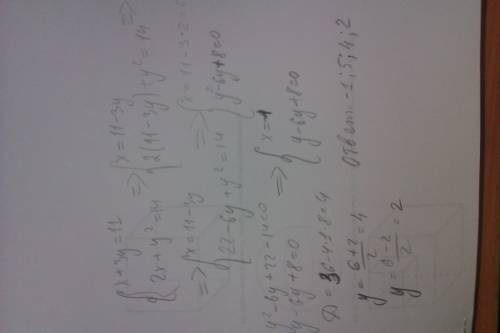 {x+3y=11
{2x+y²=14
=> {x=11-3y
{2(11-3y)+y²=14 =>
=> {x=11-3y
{22-6y+y²=14
=> {x=11-3·2=5
{y²-6y+8=0
y²-6y+22-14=0
y²-6y+8=0
=> {x=-1
{y²-6y+8=0
D=36-4·1·8=4
y=6+2/2=4
y=6-2/2=2
Ответ: -1; 5; 4; 2